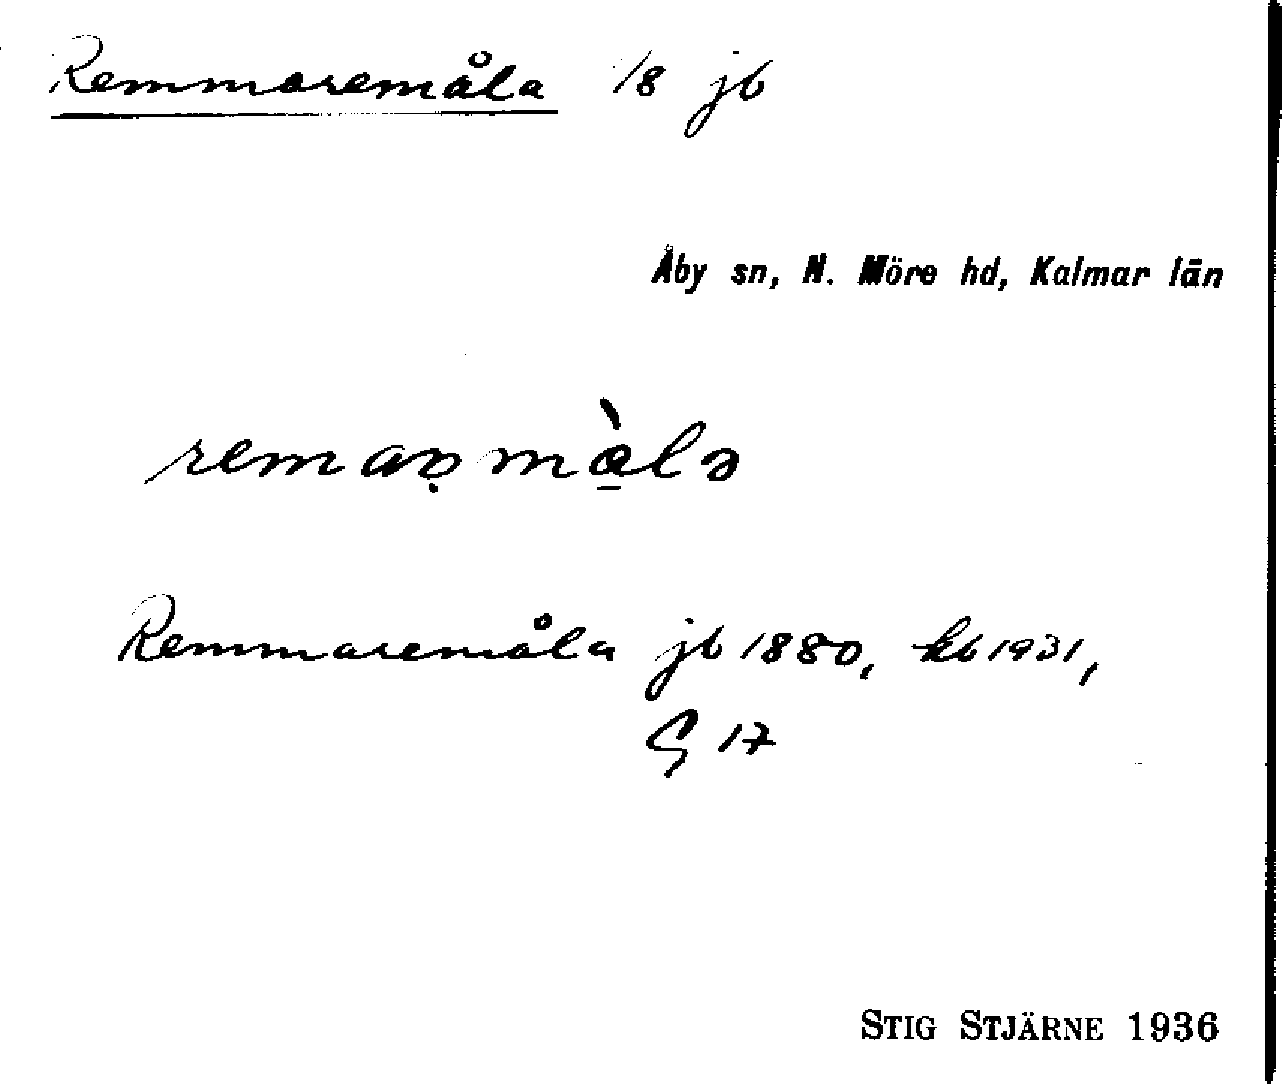 Remmaremåla 1/8 jb
Åby sn, N. Möre hd, Kalmar län
Remmaremåla jb 1880, kb 1931,
G 17
STIG STJÄRNE 1936